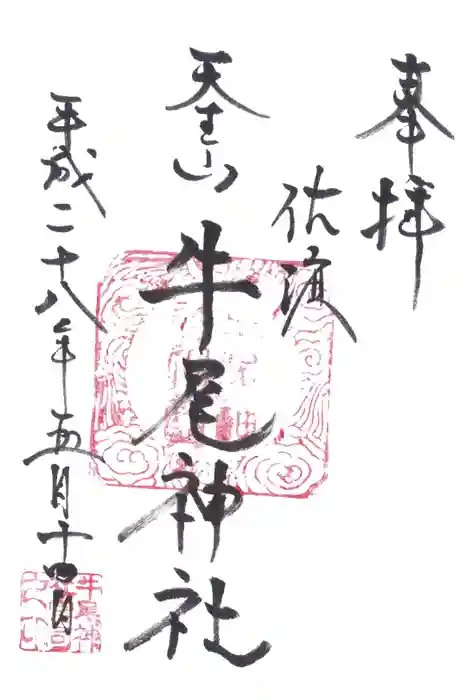 奉拝
佐渡
天王山
牛尾神社
平成二十八年五月十四日